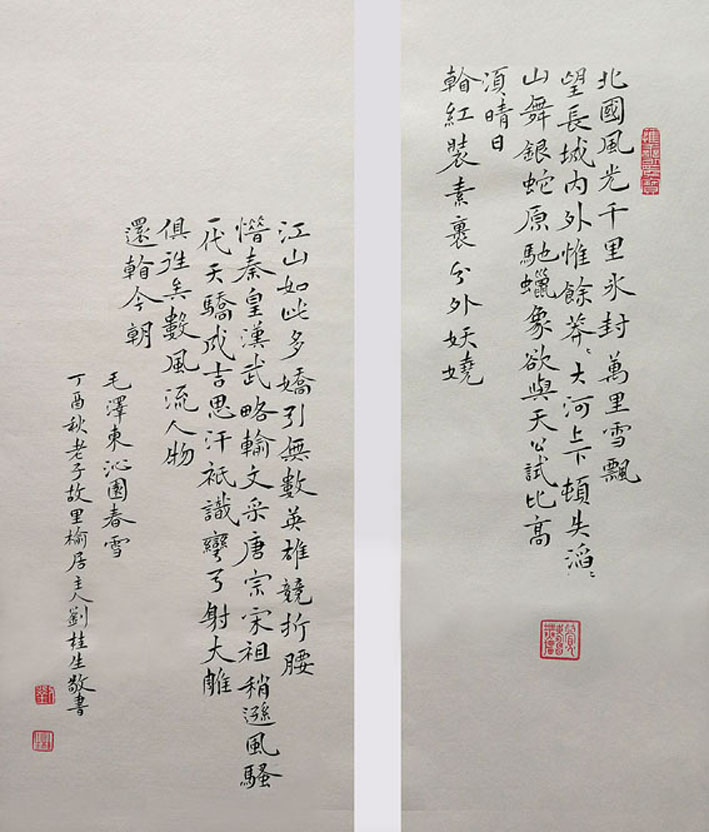 北國風光千里氷封萬里雪飄
望長城内外惟餘莽〻大河上下頓失滔〻
山舞銀蛇原馳蠟象欲與天公試比高
須晴日
看紅裝素裹分外妖嬈
江山如此多嬌引無數英雄競折腰
惜秦皇漢武略輸文采唐宗宋祖稍遜風騷
一代天驕成吉思汗衹識彎弓射大雕
俱往矣數風流人物
還看今朝
毛澤東沁園春雪
丁酉秋老子故里榆居主人劉桂生敬書